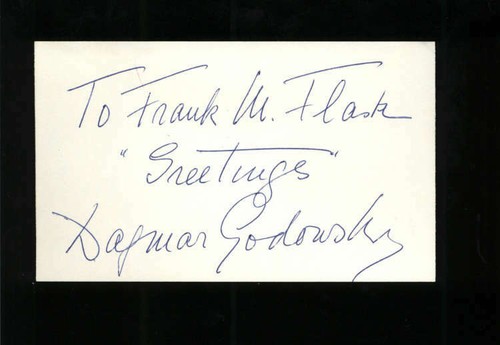 To Frank M. Flask
"Greetings"
Dagmar Godowsky